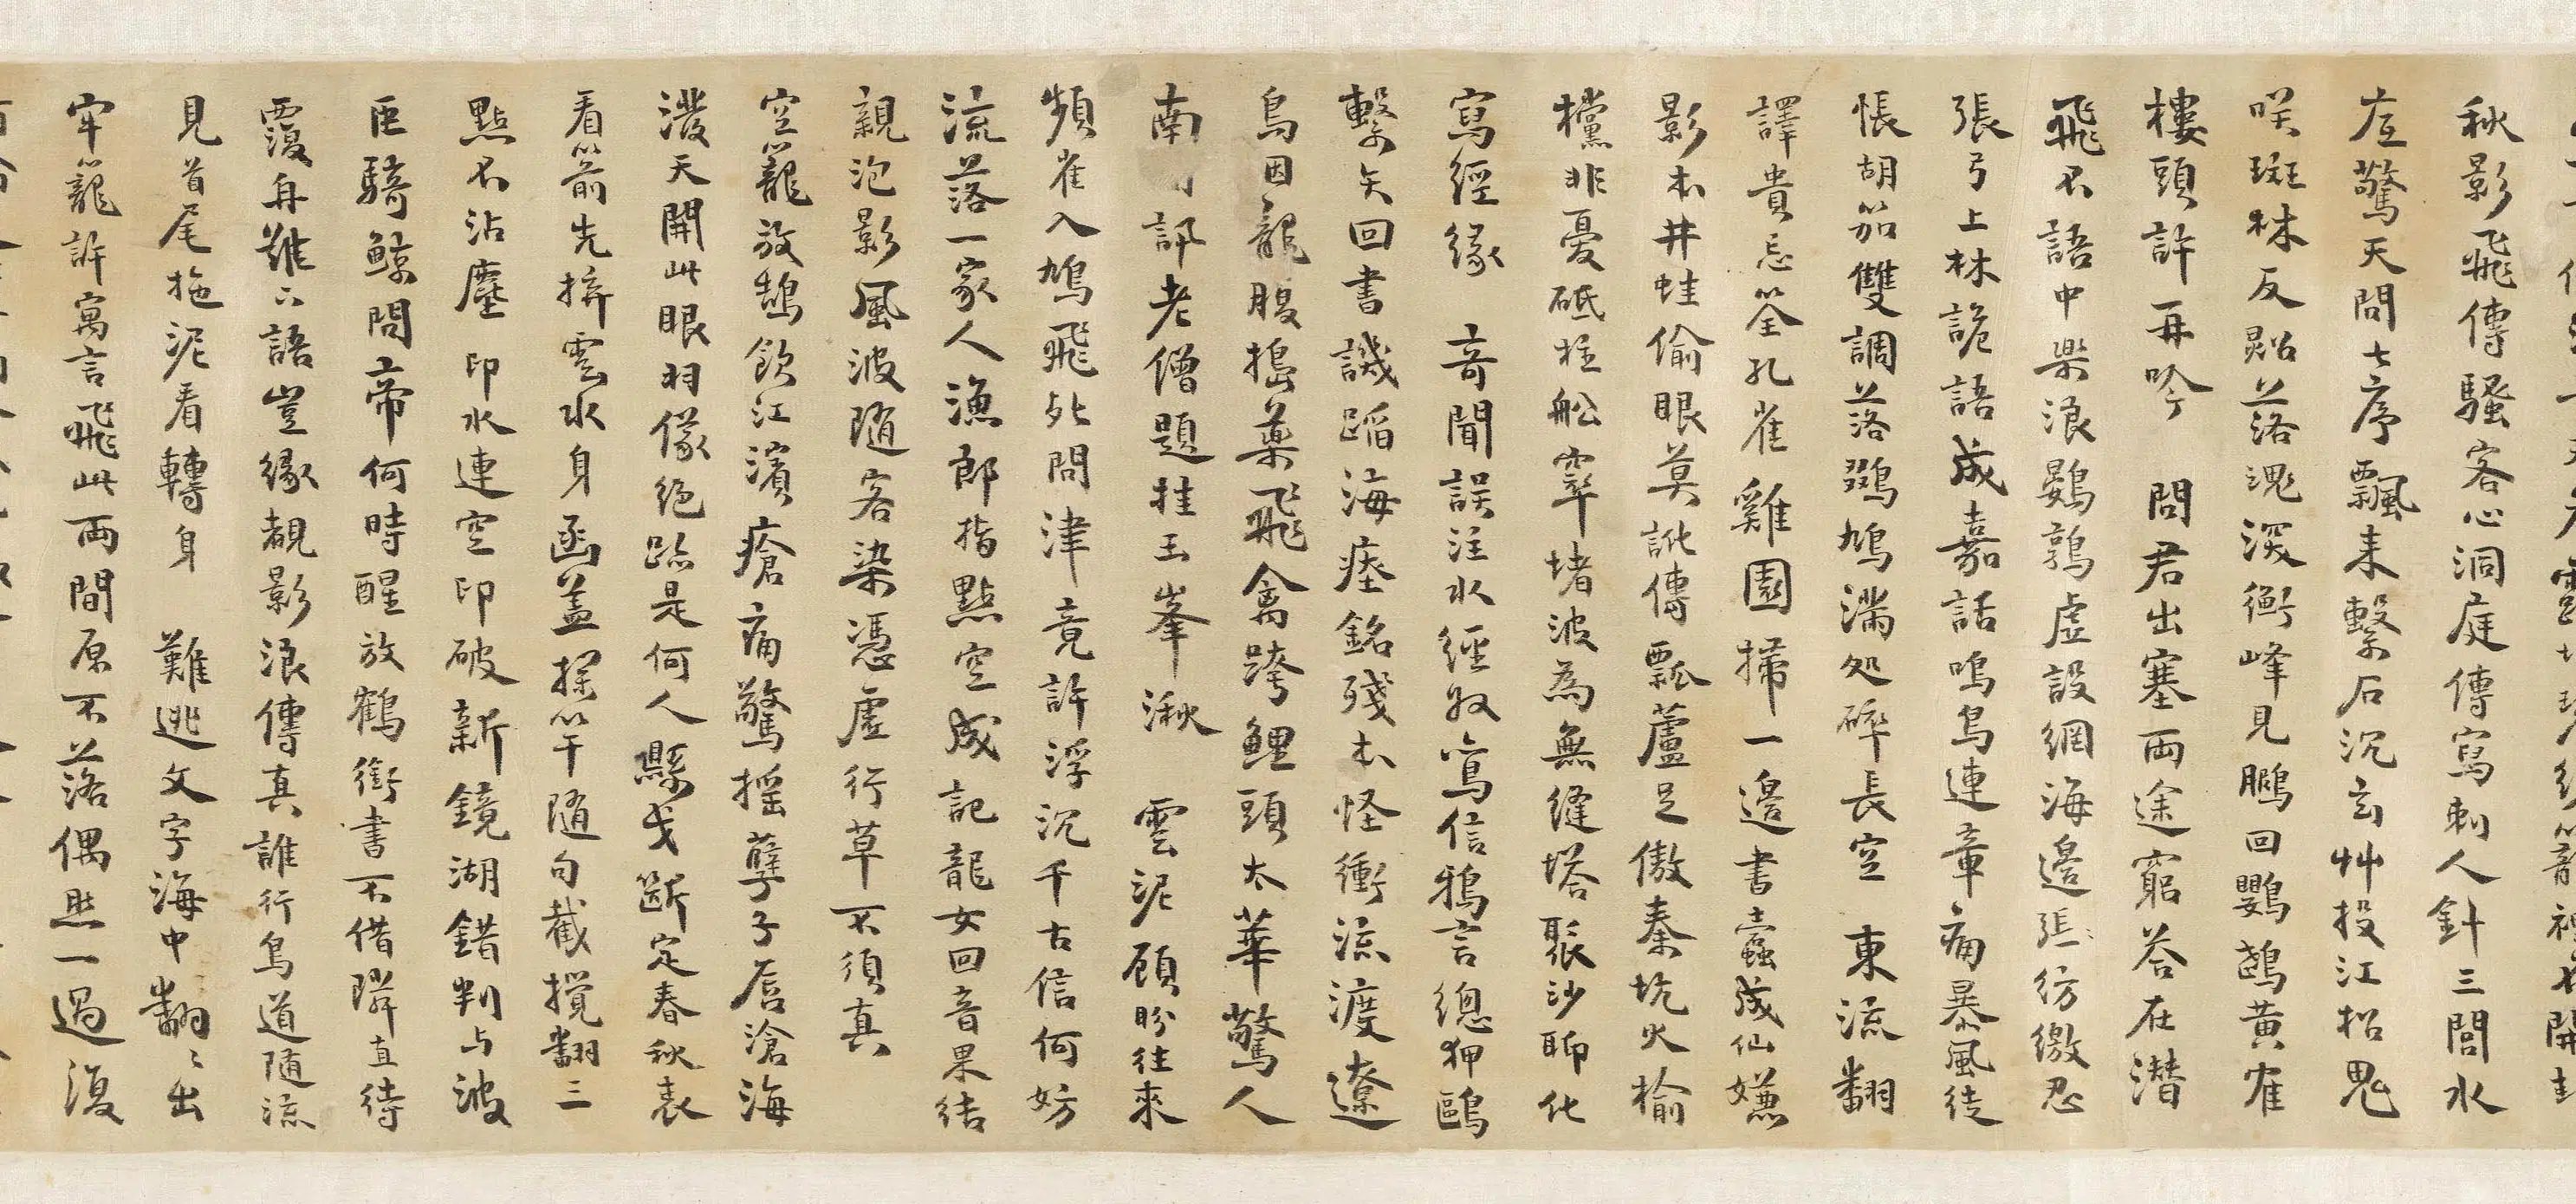 秋影飛傳騷客心洞庭傳寫刺人針三閭水
驚天問七序飄來繫石沉玄艸投江招鬼
咲斑林反黜落魂深衡峰見鵩回鸚鵡黃雀
樓頭許再吟 問君出塞兩途窮答在潛
飛不語中樂浪鷃鶉虛設網海邊張彷繳忍
張弓上林詭語成嘉話鳴烏連章痛暴風徒
悵胡笳雙調落鵶鳩滿処碎長空 東流翻
譯貴忘筌孔雀雞園掃一邊書蠹成仙嫌
影木井蛙偷眼莫訛傳瓢蘆足傲秦坑火榆
欓非憂砥柱船窣堵波為無縫塔聚沙聊化
寫經緣 奇聞誤注水經奴寫信鴉言總狎鷗
繫矢回書譏蹈海瘞銘殘木怪衝流渡遼
鳥因龍腹搗藥飛禽跨鯉頭太華驚人
南訊老僧題挂玉峯湫 雲泥顧盼往來
頻雀入鳩飛死問津竟許浮沉千古信何妨
流落一家人漁郎指點空成記龍女回音果結
親泡影風波隨客染憑虛行草不須真
空籠放鵠飲江濱瘡痛驚搖孽子唇滄海
潑天開此眼羽儀絕跡是何人縣戈斷定春秋表
看箭先拚雲水身函盖探竿隨句截攪翻三
點不沾塵 印水連空印破新鏡湖錯判与波
臣騎鯨問帝何時醒放鶴銜書不借隣直待
覆舟難下語豈緣覩影浪傳真誰行鳥道隨流
見首尾拖泥看轉身 難逃文字海中翻々出
牢籠許寓言飛此兩間原不落偶然一過復